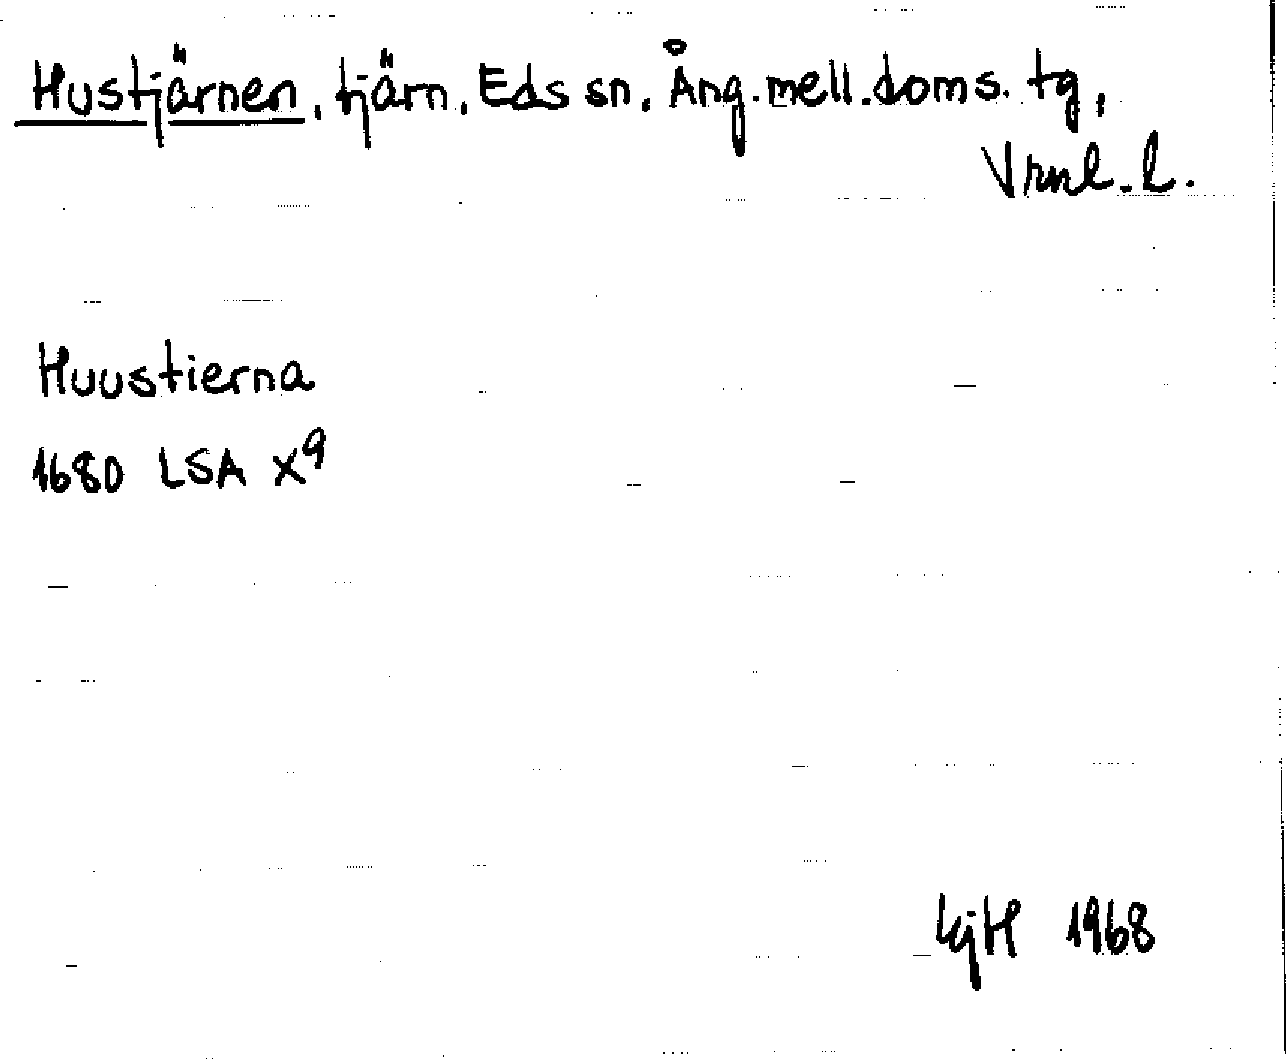 Hustjärnen, tjärn, Eds sn, Ång.mell.doms.tg,
Vrml.l.
Huustierna
1680 LSA X9
KjH 1968